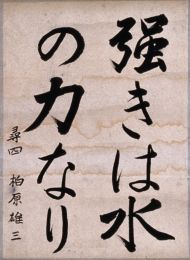 强きは水
の力なり
尋四 柏原雄三